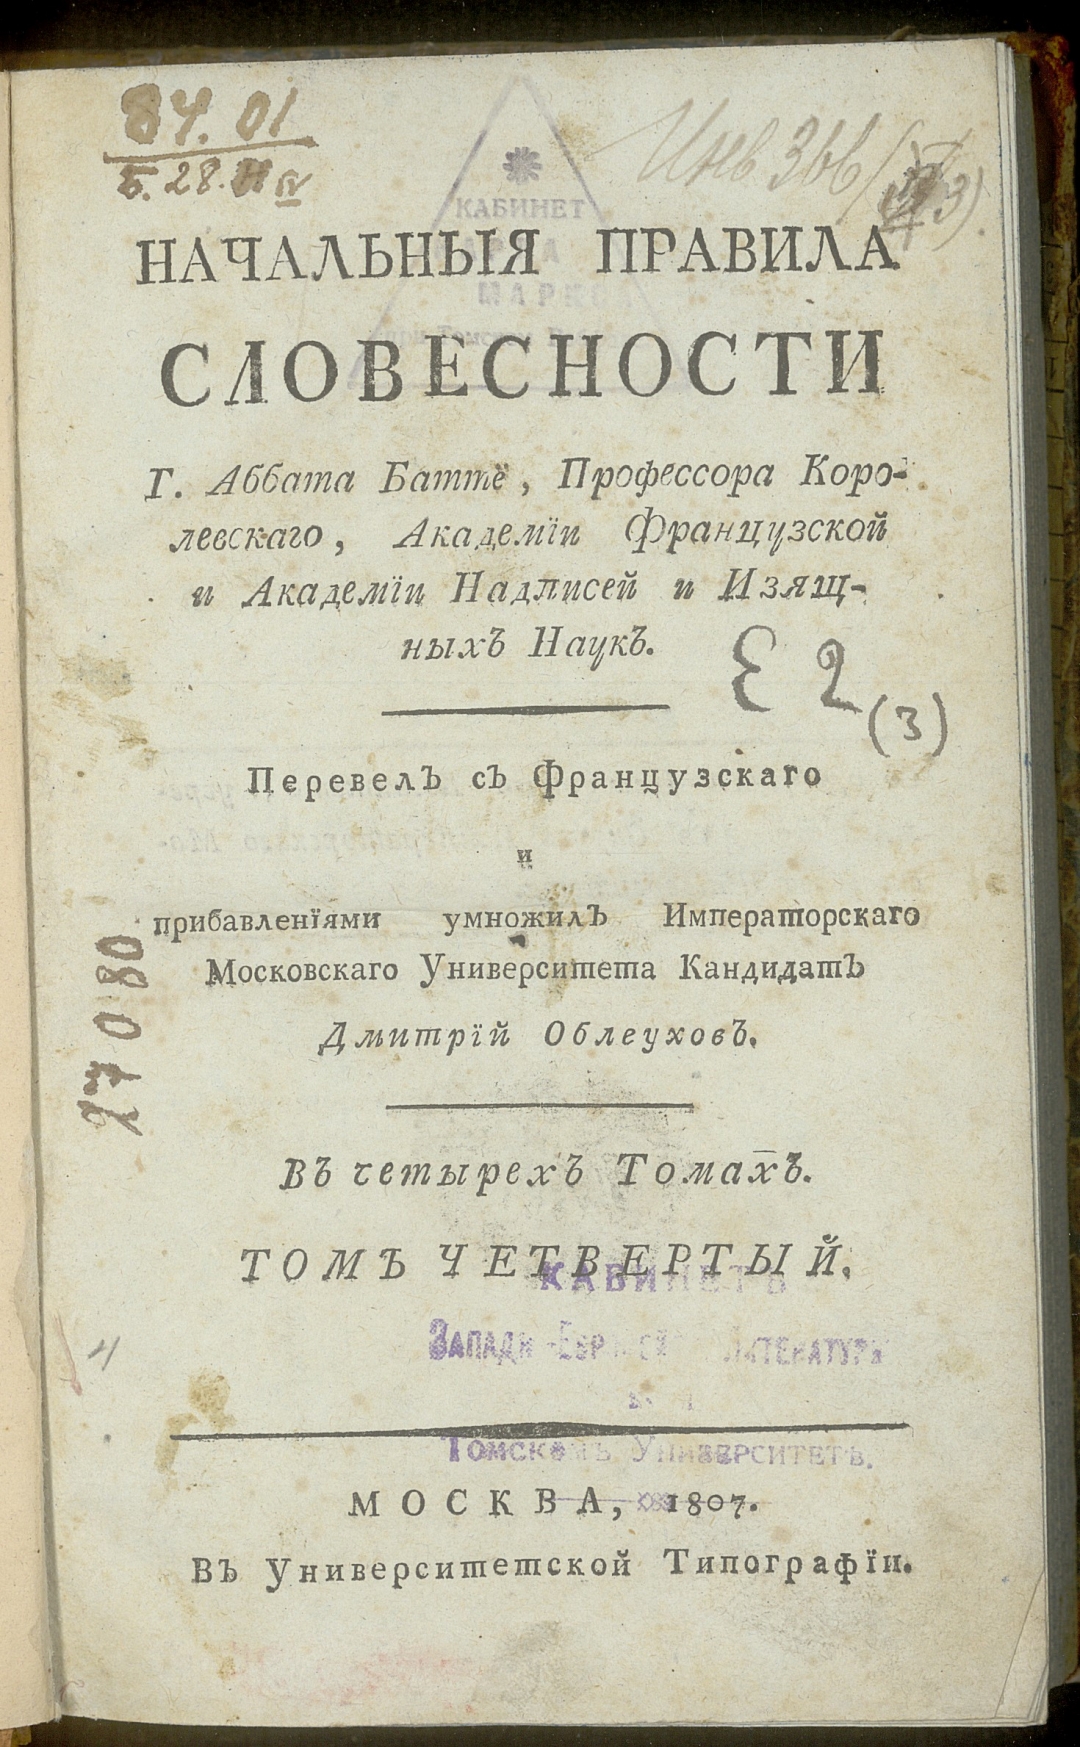 84.01
Б. 28. IV
Инв 366
КАБИНЕТ
НАЧАЛЬНЫЯ ПРАВИЛА
МАРК
СЛОВЕСНОСТИ
Г. Аббата Баттё, Профессора Коро-
левскаго, Академїи Французской
и Академїи Надписей и Изящ-
ныхъ Наукъ.
E 2 (3)
Перевелъ съ Французскаго
и
прибавленїями умножилъ Императорскаго
Московскаго Университета Кандидатъ
Дмитрїй Облеуховъ.
27080
Въ четырехъ Томахъ.
ТОМЪ ЧЕТВЕРТЫЙ.
КАБИНЕТЪ
4
Томскомъ Университетѣ.
МОСКВА, 1807.
Въ Университетской Типографїи.